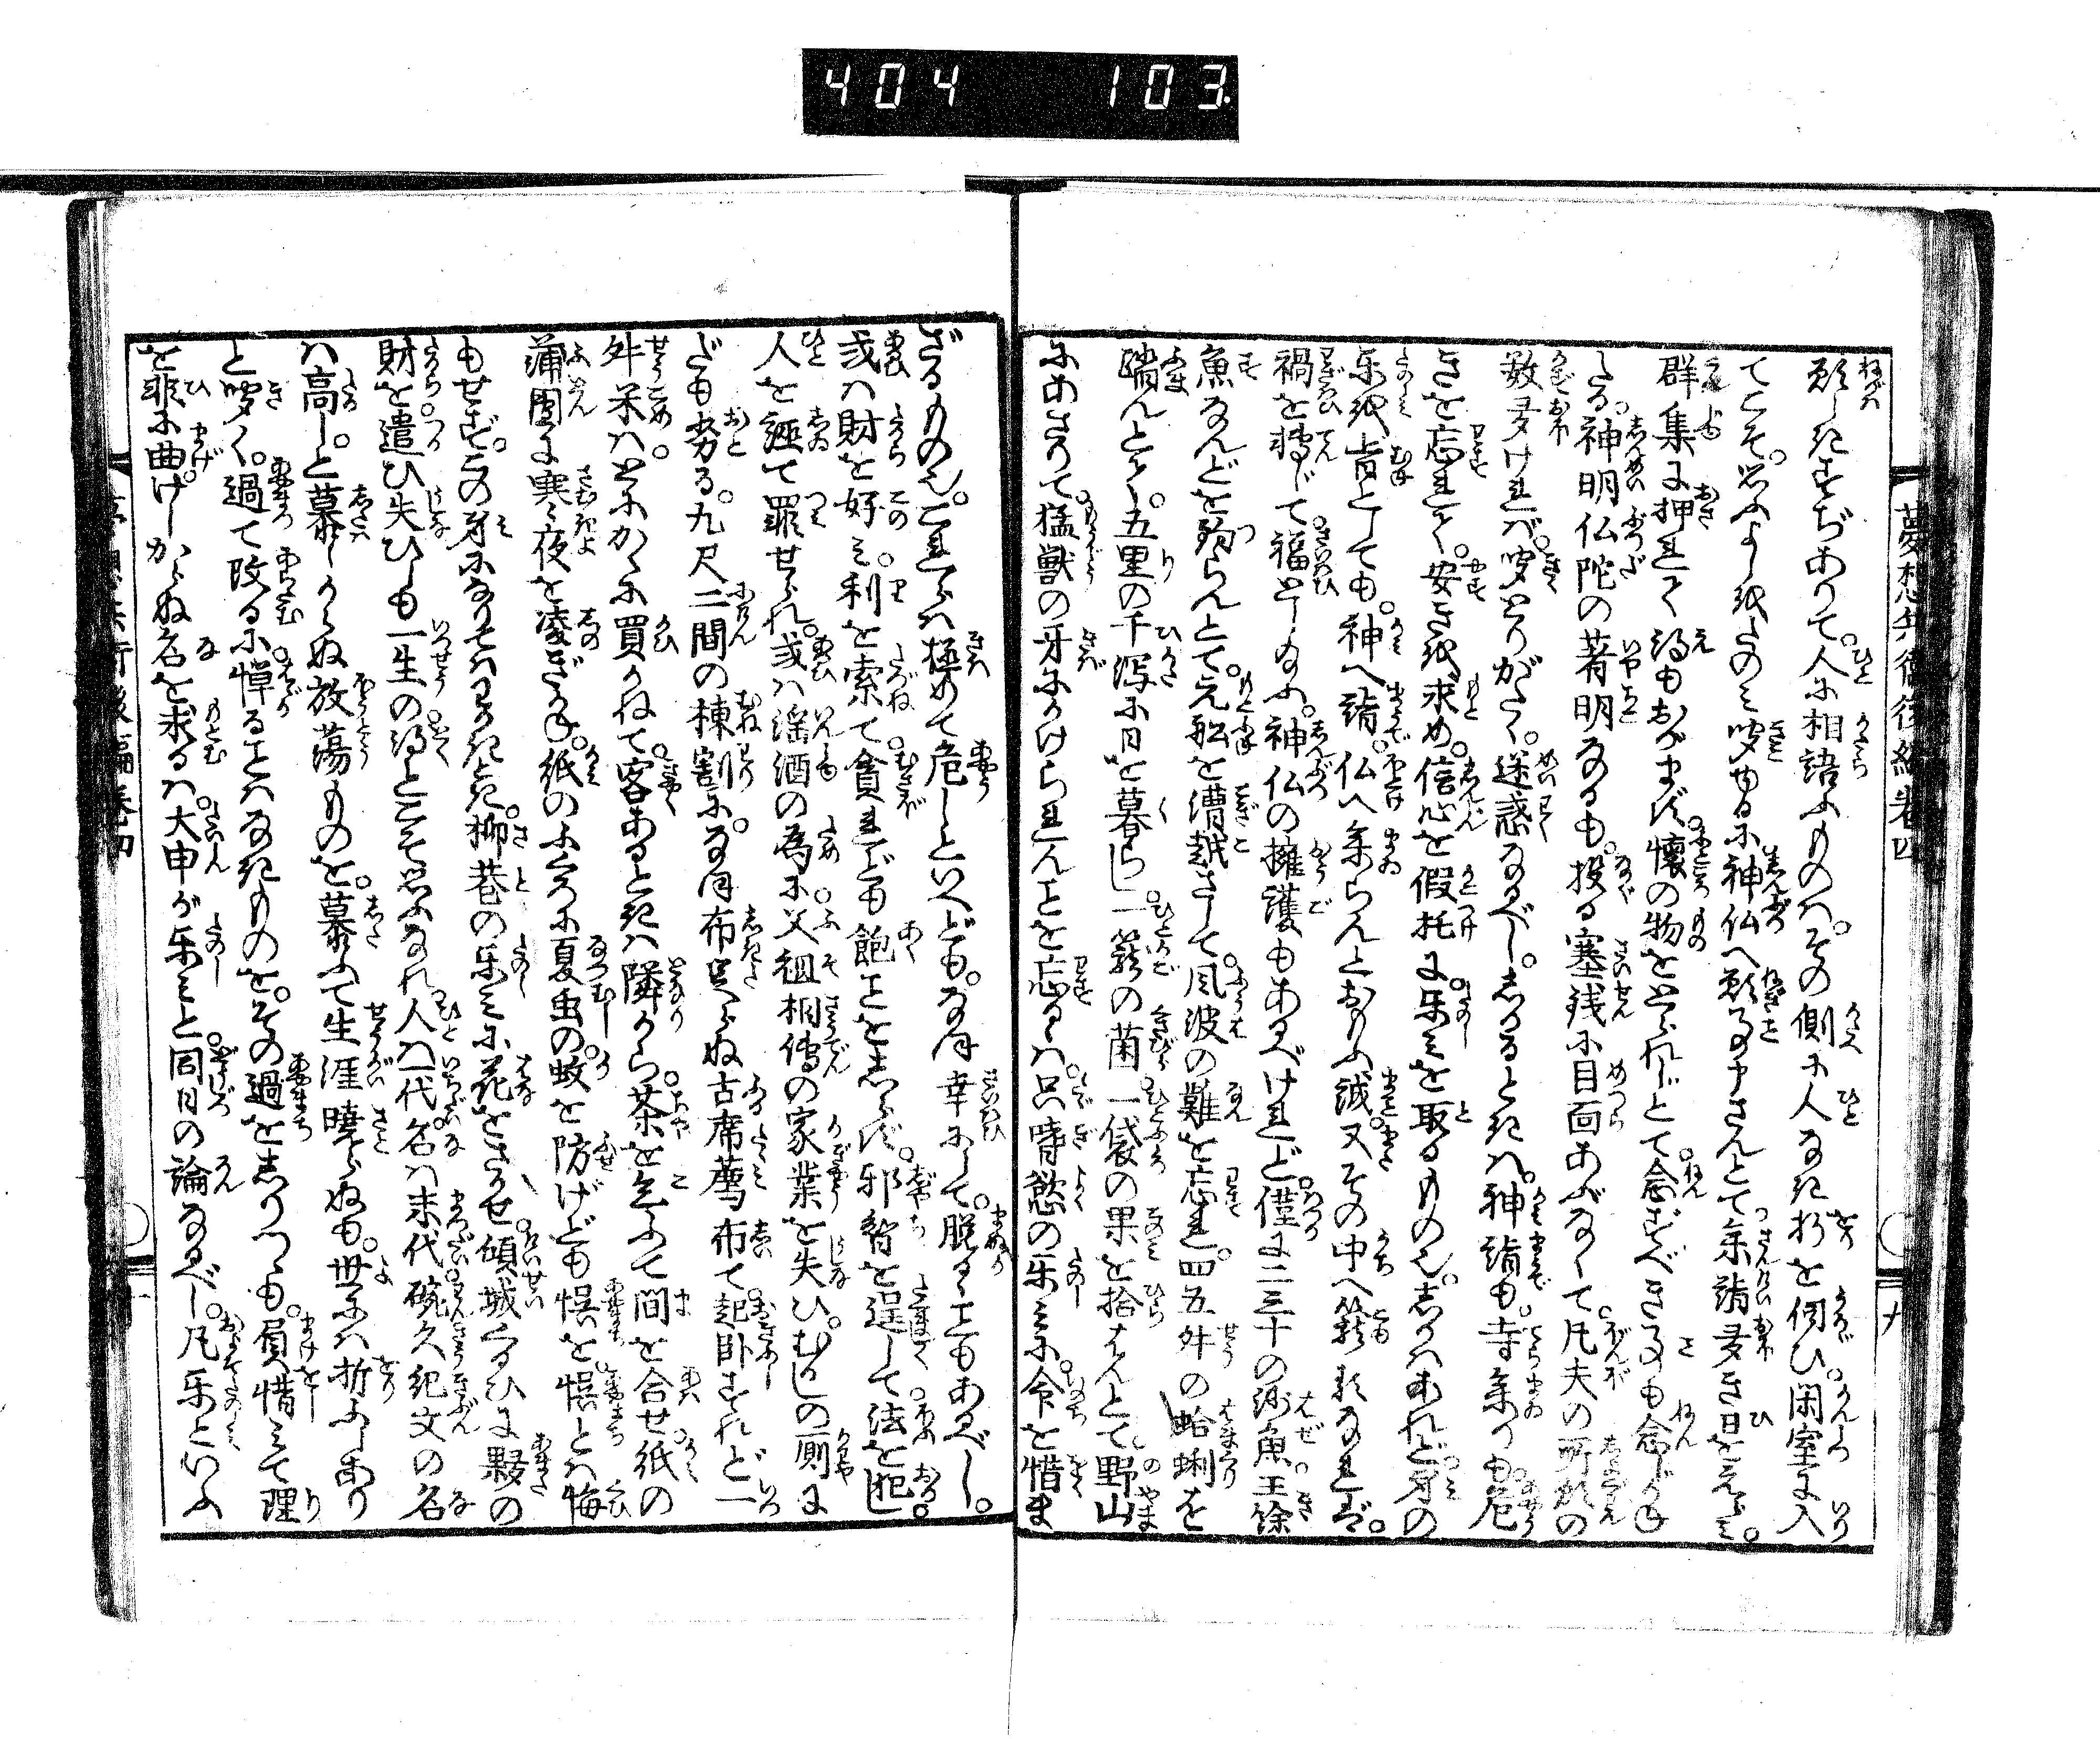 404 103
夢想兵衛後編巻四
十
願しきすぢありて。人に相語ふものハ。その側に人なき折を伺ひ。閑室に入
てこそ。思ふよしをたのミ聞ゆるに神仏へ願事申さんとて参詣多き日をえらミ。
群集に押れて得もおがまず。懐の物をとられじとて。念ずべき事も念じかね
たる。神明仏陀の著明なるも。投る塞銭に目面あぶなくて。凡夫の所願の
数多けれバ。聞とりがたく。迷惑なるべし。しかるときハ。神詣も。寺参りも。危
きを忘れて。安きを求め。信心を假托に。樂ミを取るもの也。しかハあれど。身の
樂を旨としても。神へ詣。仏へ参らんとおもふ誠。又その中へ籠れるなれば。
禍を轉じて。福としたまふ。神仏の擁護もあるべけれど。僅に二三十の沙魚王餘
魚なんどを釣らんとて。元船を漕越さして。風波の難を忘れ。四五舛の蛤蜊を
蹈んとて。五里の干瀉に日を暮らし。一籠の菌。一袋の果を拾はんとて。野山
にあさりて。猛獣の牙にかけられんことを忘るゝハ。只嗜慾の樂ミに。命を惜ま
ざるもの也。これらハ極めて危しといへども。なほ幸にして。脱るゝこともあるべし。
或ハ財を好ミ。利を索て。貪れども飽ことをしらず。邪智を逞して法を犯し。
人を誣て罪せられ。或ハ淫酒の為に父祖相傳の家業を失ひ。むかしの厠に
だも劣る。九尺二間の棟割に。なほ布足らぬ古席薦布て起臥すれど。一
舛米ハ。とにかくに買かねて。客あるときハ隣から。茶を乞ふて間を合せ紙の
蒲團に寒き夜を凌ぎかね。紙のふくろに夏虫の。蚊を防げども悞を悞とハ悔
もせず。この身になりてハわかきとき。柳巷の樂ミに花をさかせ。傾城ぐるひに夥の
財を遣ひ失ひしも一生の得とこそ思ふなれ。人ハ一代名ハ末代。碗久紀文の名
ハ高し。と慕しからぬ放蕩ものを。慕ふて生涯曉らぬも。世にハ折ふしあり
と聞く。過て改るに憚ることハなきものを。その過をしりつゝも。負惜ミて理
を非に曲げ。しからぬ名を求るハ。大申が樂ミと。同日の論なるべし。凡樂といふ